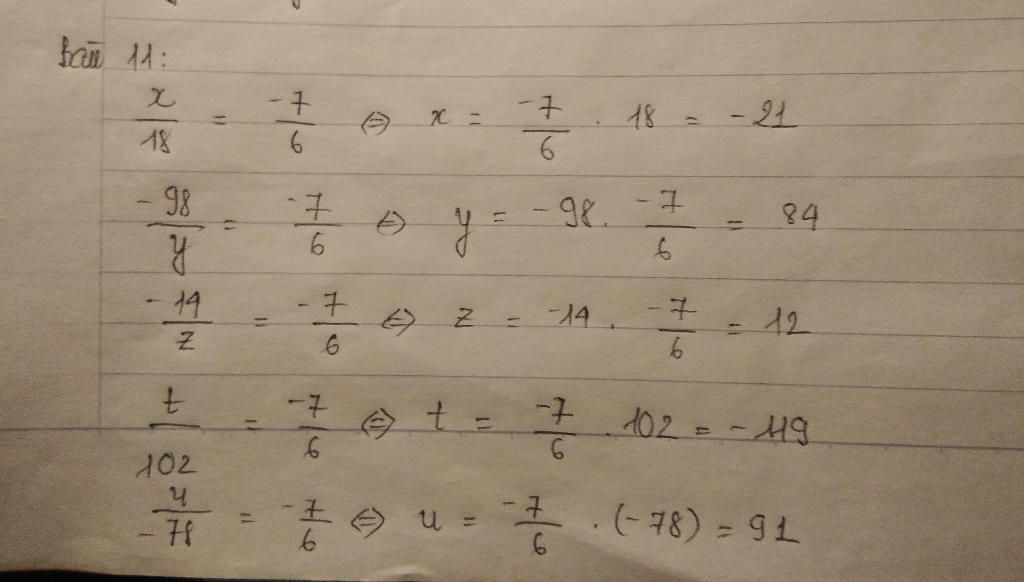 Bài 11:
x/18 = -7/6 ⇔ x = -7/6 . 18 = -21
-98/y = -7/6 ⇔ y = -98. -7/6 = 84
-14/z = -7/6 ⇔ z = -14 . -7/6 = 12
t/102 = -7/6 ⇔ t = -7/6 . 102 = -119
u/-78 = -7/6 ⇔ u = -7/6 . (-78) = 91